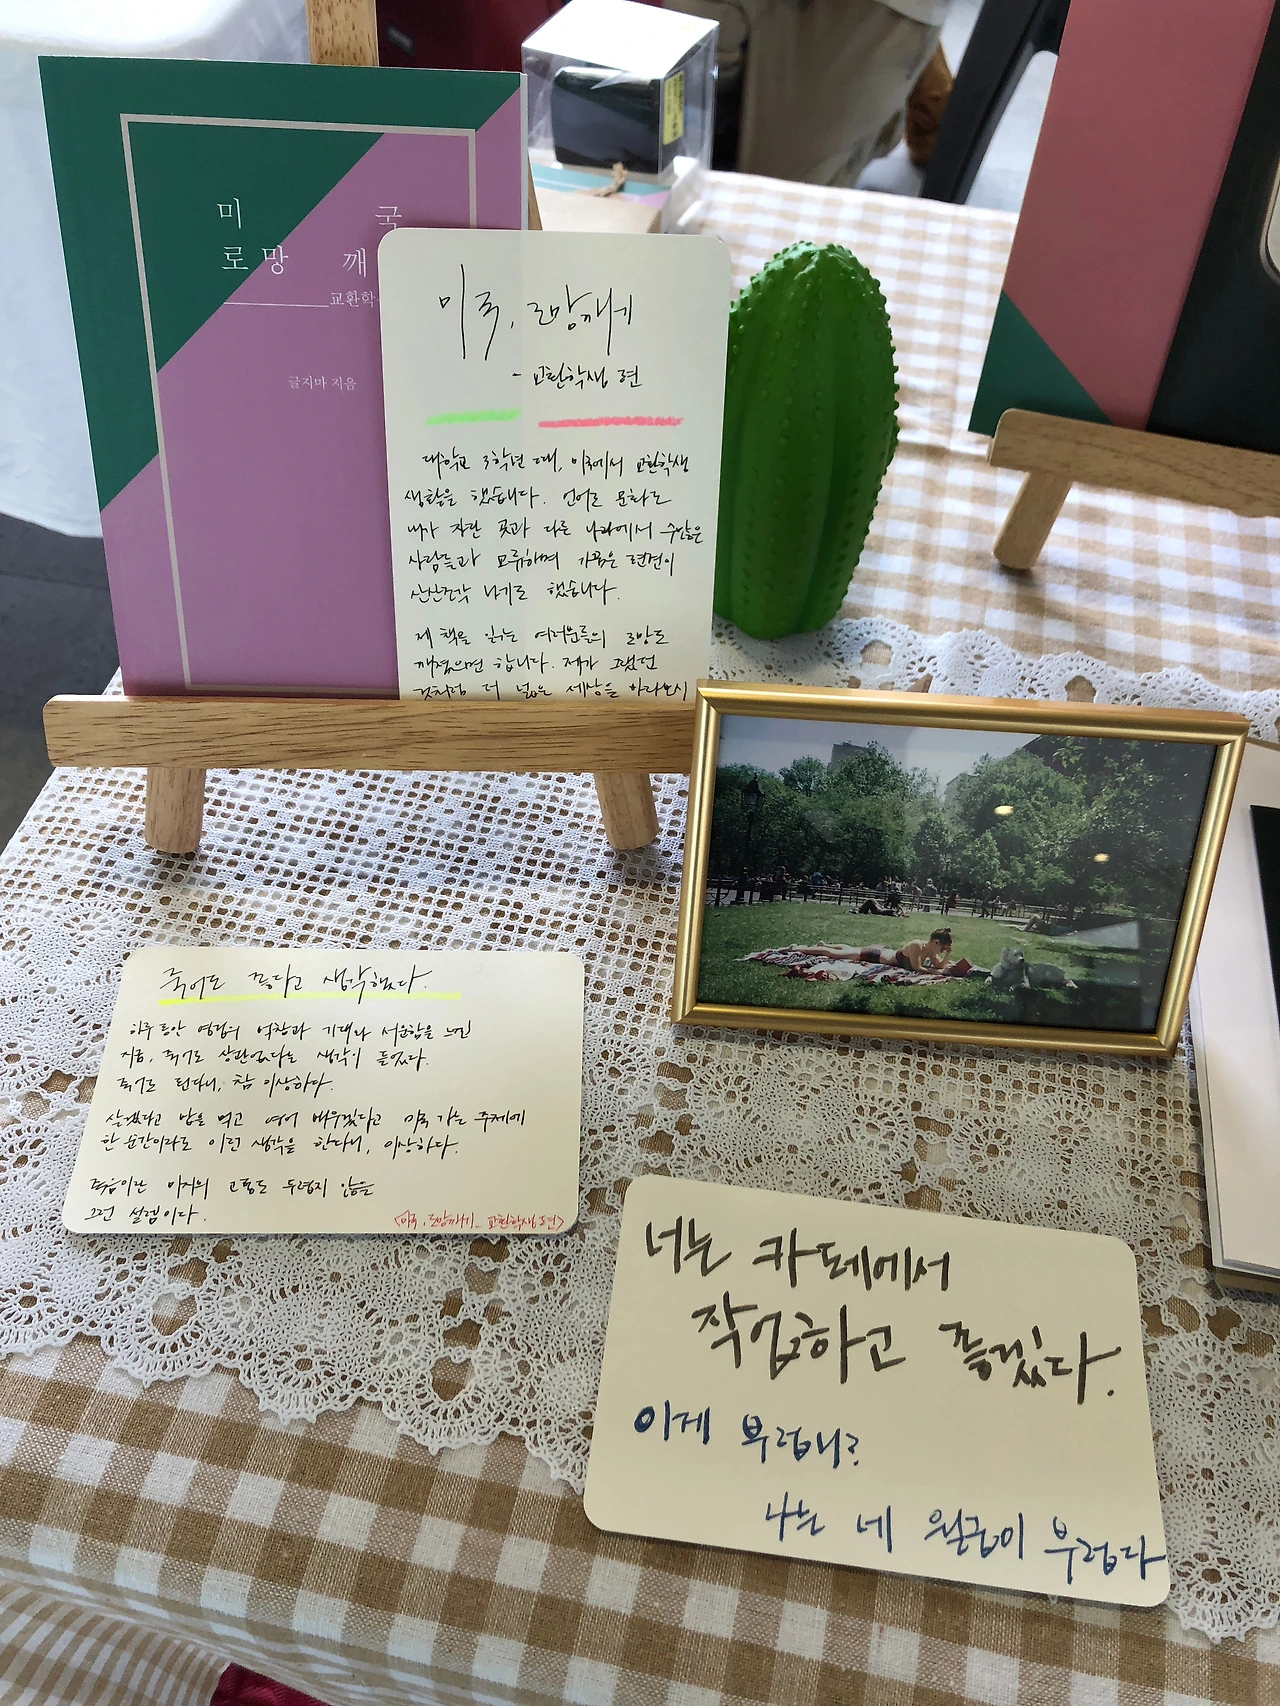 미 국
로망 깨
교환학
글지마 지음
미국, 로망깨기
- 교환학생 편
대학교 3학년 때, 미국에서 교환학생
생활을 했습니다. 언어도 문화도
내가 자란 곳과 다른 나라에서 수많은
사람들과 교류하며 가끔은 편견이
산산조각 나기도 했습니다.
제 책을 읽는 여러분들의 로망도
깨졌으면 합니다. 제가 그랬던
것처럼 더 넓은 세상을 바라보시
죽어도 좋다고 생각했다.
하루 동안 영겁의 억창과 기대나 서운함을 느낀
지금, 죽어도 상관없다는 생각이 들었다.
죽어도 된다니, 참 이상하다.
살겠다고 밥을 먹고 영어 배우겠다고 미국 가는 주제에
한 순간이라도 이런 생각을 한다니, 이상하다.
죽음이란 미지의 고통도 두렵지 않을
그런 설렘이다.
<미국, 로망깨기_교환학생 편>
너는 카페에서
작업하고 좋겠다.
이게 부럽니?
나는 네 월급이 부럽다